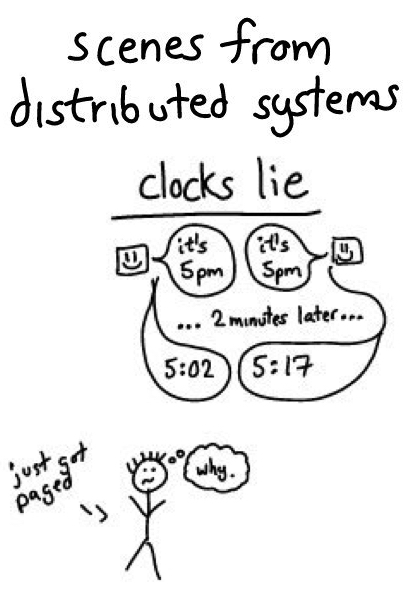 scenes from
distributed systems
clocks lie
it's
5pm
it's
5pm
... 2 minutes later...
5:02
5:17
just got
paged
why.